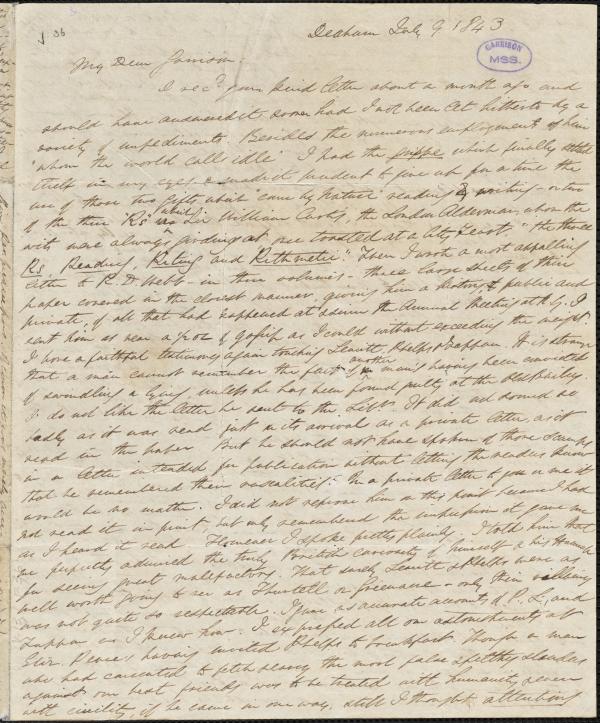 Dedham July 9 1843
GARRISON
MSS.
My Dear Garrison.
I rec.d your kind letter about a month ago and
should have answered it sooner had I not been let hitherto by a
variety of impediments. Besides the numerous employments of him
"whom the world calls idle" I had the grippe which finally settled
itself in my eyes & made it prudent to give up for a time the
use of those two gifts which "came by Nature" reading & writing – or two
of the three "Rs" which Sir William Curtis, the London Alderman, whom the
wits were always girding at once toasted at a City Feast, "the three
Rs, Reading, Riting and Rithmetic". Then I wrote a most appalling
letter to R. D. Webb – in three volumes – three large sheets of thin
paper covered in the closest manner, giving him a history of public and
private, of all that had happened at & during the Annual Meeting at N.Y. I
sent him as near a 1/2 oz of gossip as I could without exceeding the weight
I bore a faithful testimony again touching Leavitt, Phelps & Tappan. It is strange
that a man cannot remember the fact of another man's having been convicted
of swindling & lying unless he has been found guilty at the Old Bailey.
I do not like the letter he sent to the Lib.r It did not sound so
badly as it was read just on its arrival as a private letter, as it
read in the paper But he should not have spoken of those scamps
in a letter intended for publication without letting the readers know
that he remembered their rascalities. In a private letter to you or me it
would be no matter. I did not reprove him on this point because I had
not read it in print, but only remembered the impression it gave me
as I heard it read However I spoke pretty plainly. I told him that
we perfectly admired the truly British curiosity of himself & his
for seeing great malefactors. That surely Leavitt & Phelps were as
well worth going to see as Thurtell or Greenacre – only their
was not quite so respectable. I gave as accurate accounts of P. L, and
Tappan as I knew how. I expressed all our astonishment at
Eliz. Pease's having invited Phelps to breakfast. Though a man
who had consented to fetch & carry the most false & filthy slanders
against our best friends was to be treated with humanity, & even
with civility, if he came in one's way, still I thought